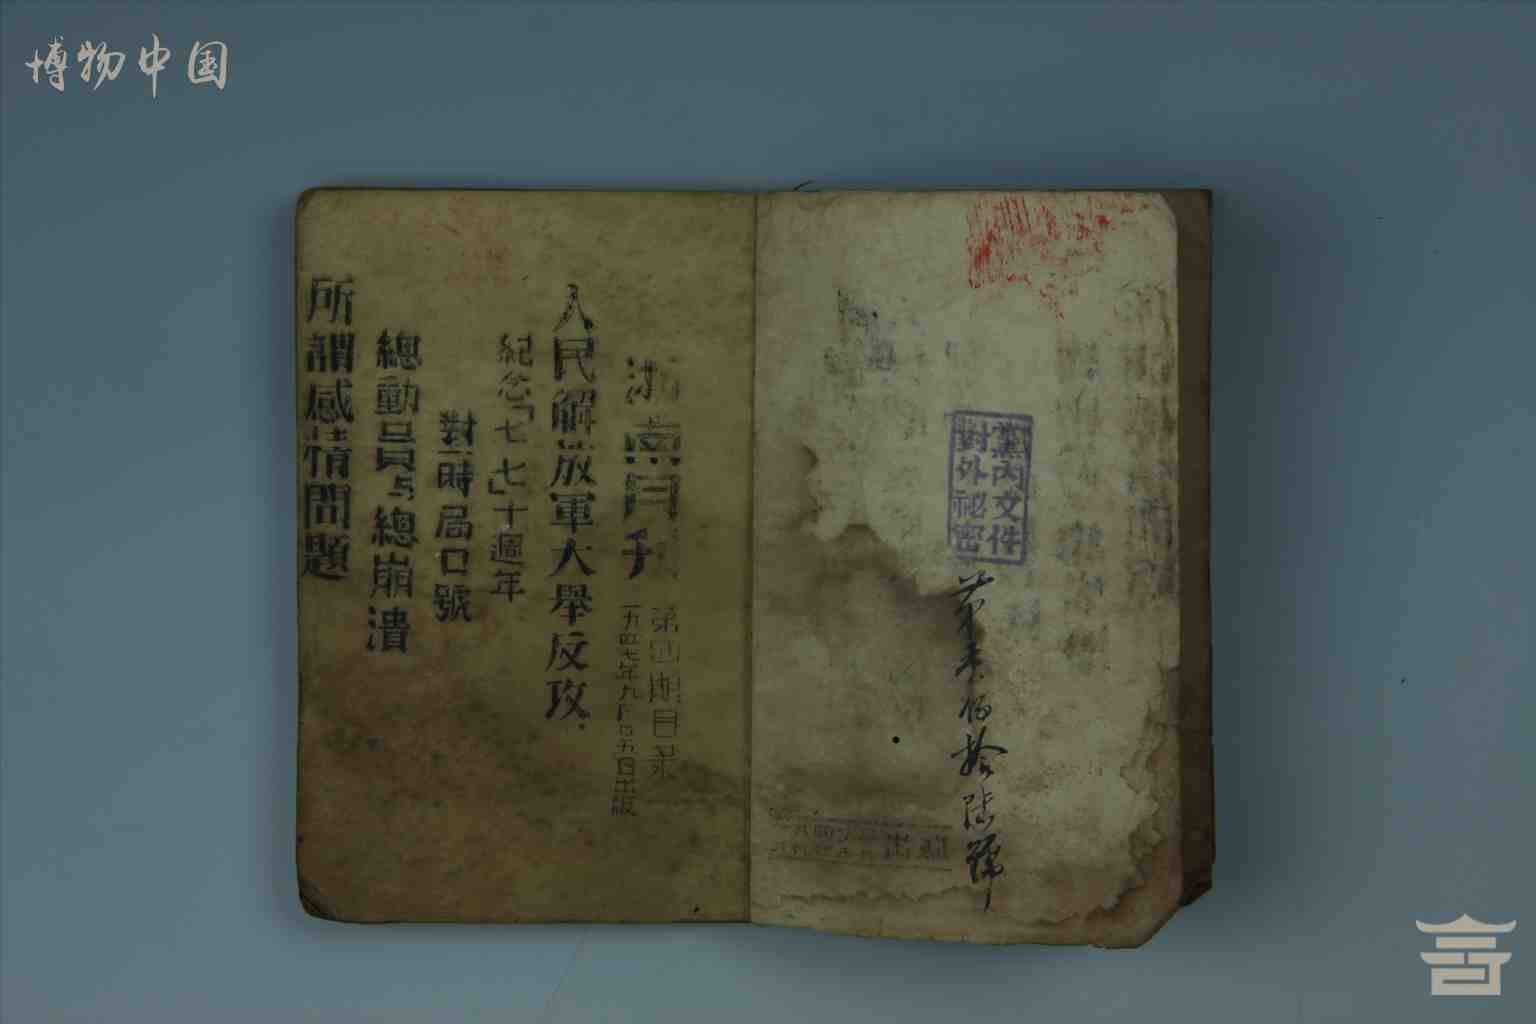 博物中国
黨內文件
對外祕密
拾陸號
浙南月刊
第四期目录
一九四七年九月廿五日出版
人民解放軍大舉反攻
紀念「七七」十週年
對時局口號
總動員与總崩潰
所謂感情問題